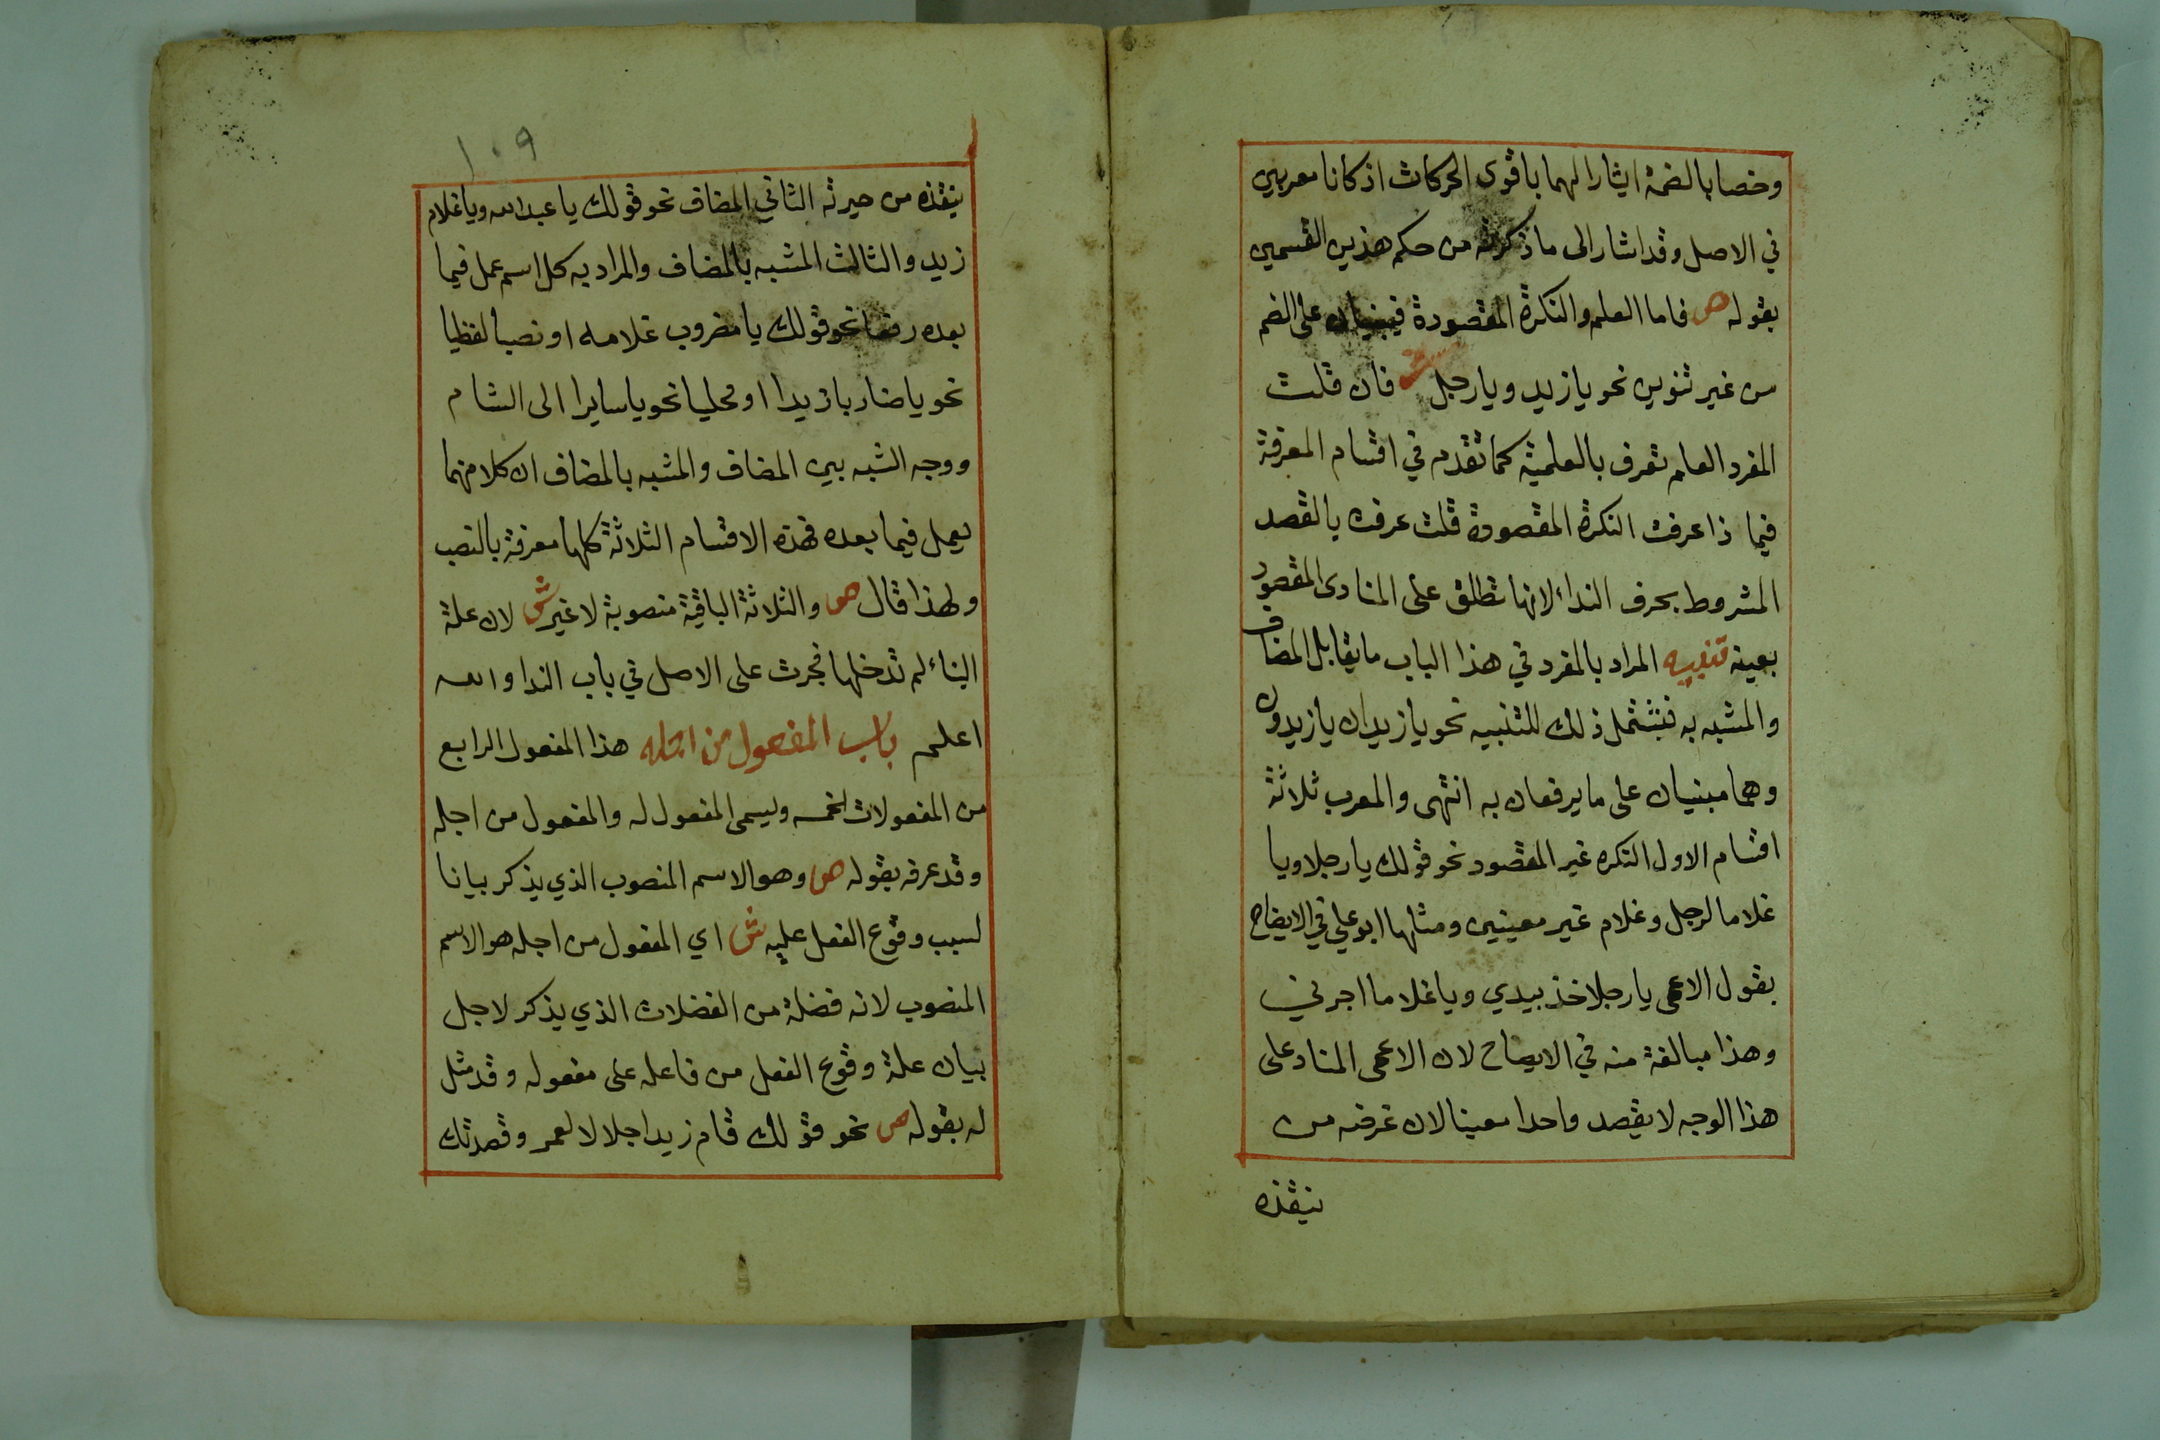 وخصا بالضمة ايثارا لهما باقوى الحركات اذ كانا معربين
في الاصل وقد اشار الى ما ذكرته من حكم هذين القسمين
بقوله ص فاما العلم والنكرة المقصودة فيبنيان على الضم
من غير تنوين نحو يا زيد ويا رجل ش فان قلت
المفرد العلم تعرف بالعلمية كما تقدم في اقسام المعرفة
فبما ذا عرفت النكرة المقصودة قلت عرفت بالقصد
المشروط بحرف النداء لانها تطلق على المنادى المقصود
بعينه تنبيه المراد بالمفرد في هذا الباب ما يقابل المضاف
والمشبه به فيشتمل ذلك للتثنيه نحو يا زيدان يا زيدون
وهما مبنيان على ما يرفعان به انتهى والمعرب ثلاثة
اقسام الاول النكره غير المقصود نحو قولك يا رجلا ويا
غلاما لرجل وغلام غير معينين ومثلها ابو علي في الايضاح
بقول الاعمى يا رجلا خذ بيدي ويا غلاما اجرني
وهذا مبالغة منه في الايضاح لان الاعمى المناد على
هذا الوجه لا يقصد واحدا معينا لان غرضه من
ينقذه
١٠٩
ينقذه من حيرته الثاني المضاف نحو قولك يا عبد الله ويا غلام
زيد والثالث المشبه بالمضاف والمراد به كل اسم عمل فيما
بعده رفعا نحو قولك يا مضروب غلامه او نصبا لفظيا
نحو يا ضاربا زيدا او محليا نحو يا سايرا الى الشام
ووجه الشبه بين المضاف والمشبه بالمضاف ان كلا منهما
يعمل فيما بعده فهذه الاقسام الثلاثة كلها معرفة بالنصب
ولهذا قال ص والثلاثة الباقية منصوبة لا غير ش لان علة
البناء لم تدخلها فجرت على الاصل في باب الندا والله
اعلم باب المفعول من اجله هذا المفعول الرابع
من المفعولات الخمسه ويسمى المفعول له والمفعول من اجله
وقد عرفه بقوله ص وهو الاسم المنصوب الذي يذكر بيانا
لسبب وقوع الفعل عليه ش اي المفعول من اجله هو الاسم
المنصوب لانه فضلة من الفضلات الذي يذكر لاجل
بيان علة وقوع الفعل من فاعله على مفعوله وقد مثل
له بقوله ص نحو قولك قام زيد اجلالا لعمر وقصدتك